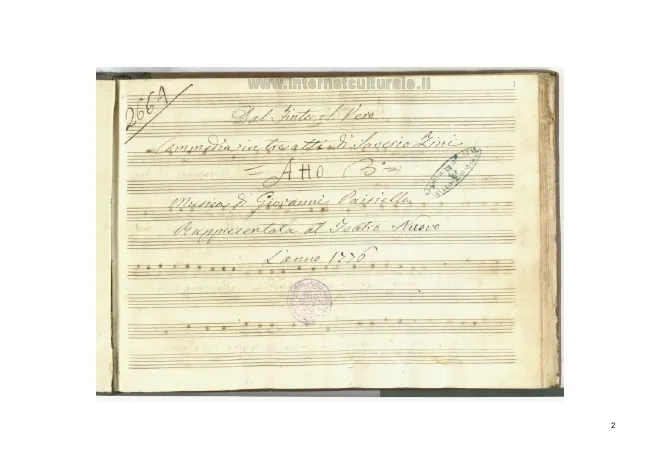 www.internetculturale.it
2661
Dal Finto il Vero
Commedia in tre atti di Saverio Zini
= Atto 3° =
Musica di Giovanni Paisiello
Rappresentata al Teatro Nuovo
L'anno 1776
2